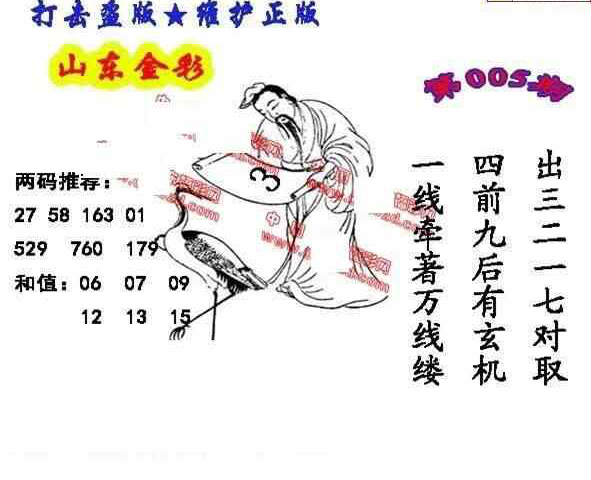 打击盗版★维护正版
山东金彩
第005期
两码推荐:
27 58 163 01
529 760 179
和值: 06 07 09
12 13 15
3
出三二一七对取
四前九后有玄机
一线牵著万线缕